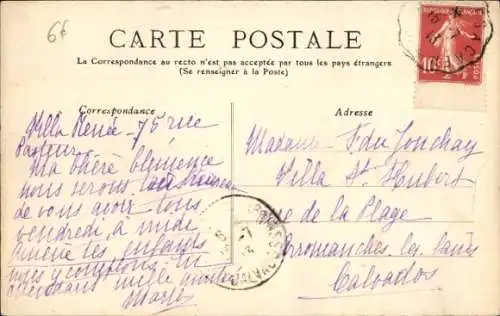 6f
CARTE POSTALE
La Correspondance au recto n'est pas acceptée par tous les pays étrangers
(Se renseigner à la Poste)
Correspondance
Adresse
Villa Renée - 75 rue
Pasteur.
Ma chère Clémence
nous serons
de vous avoir tous
vendredi à midi
les enfants
nous y comptons. En
mille
Madame F. du Jonchay
Villa St Hubert
rue de la Plage
Arromanches les bains
Calvados
10c